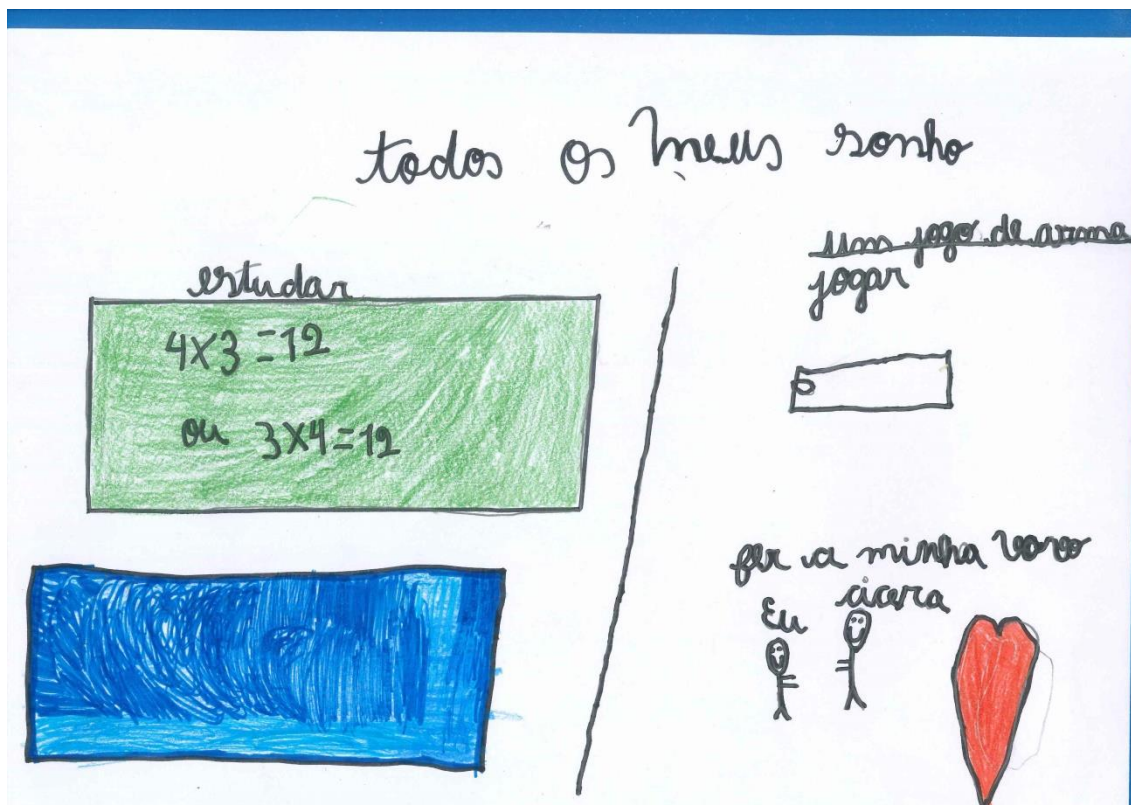 todos os meus sonho
estudar
4x3=12
ou 3x4=12
um jogo de arma
jogar
fer a minha vovo
cicera
Eu